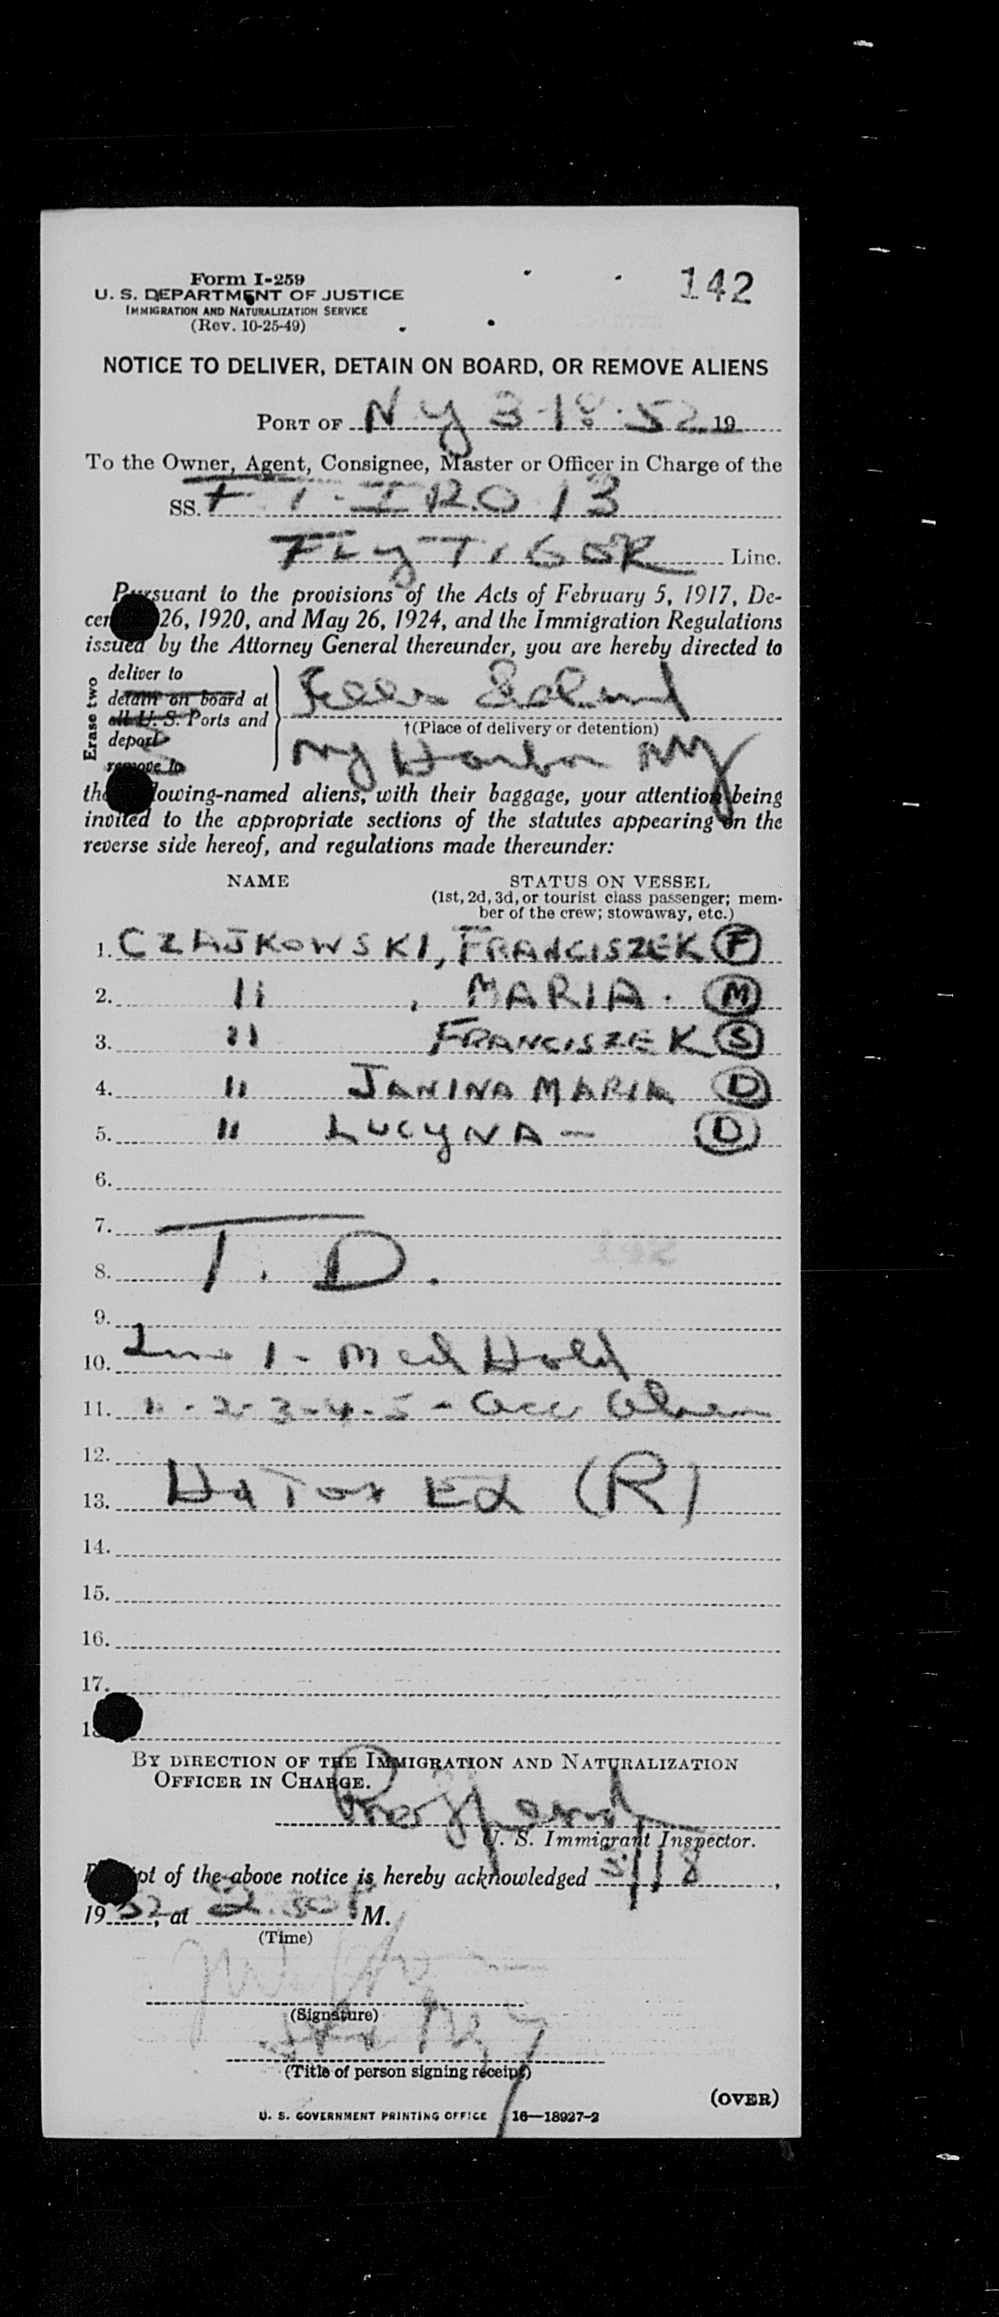 142
Form I-259
U. S. DEPARTMENT OF JUSTICE
IMMIGRATION AND NATURALIZATION SERVICE
(Rev. 10-25-49)
NOTICE TO DELIVER, DETAIN ON BOARD, OR REMOVE ALIENS
PORT OF NY 3-18-52, 19
To the Owner, Agent, Consignee, Master or Officer in Charge of the
SS. FT-IRO 13
FLY TIGER Line.
Pursuant to the provisions of the Acts of February 5, 1917, De-
cem 26, 1920, and May 26, 1924, and the Immigration Regulations
issued by the Attorney General thereunder, you are hereby directed to
Erase two
deliver to
detain on board at
all U. S. Ports and
deport
remove to
Ellis Island
†(Place of delivery or detention)
NY Harbor NY
the lowing-named aliens, with their baggage, your attention being
invited to the appropriate sections of the statutes appearing on the
reverse side hereof, and regulations made thereunder:
NAME STATUS ON VESSEL
(1st, 2d, 3d, or tourist class passenger; mem-
ber of the crew; stowaway, etc.)
1. CZAJKOWSKI, FRANCISZEK F
2. " , MARIA. M
3. " FRANCISZEK S
4. " JANINA MARIA D
5. " LUCYNA - D
6.
7.
8. T. D.
9.
10. 1 - Med Hold
11. 1-2-3-4-5 - Acc Alien
12.
13. (R)
14.
15.
16.
17.
18
BY DIRECTION OF THE IMMIGRATION AND NATURALIZATION
OFFICER IN CHARGE.
U. S. Immigrant Inspector.
Receipt of the above notice is hereby acknowledged 3/18,
19 52, at 2:30 P M.
(Time)
(Signature)
(Title of person signing receipt)
(OVER)
U. S. GOVERNMENT PRINTING OFFICE 16—18927-2